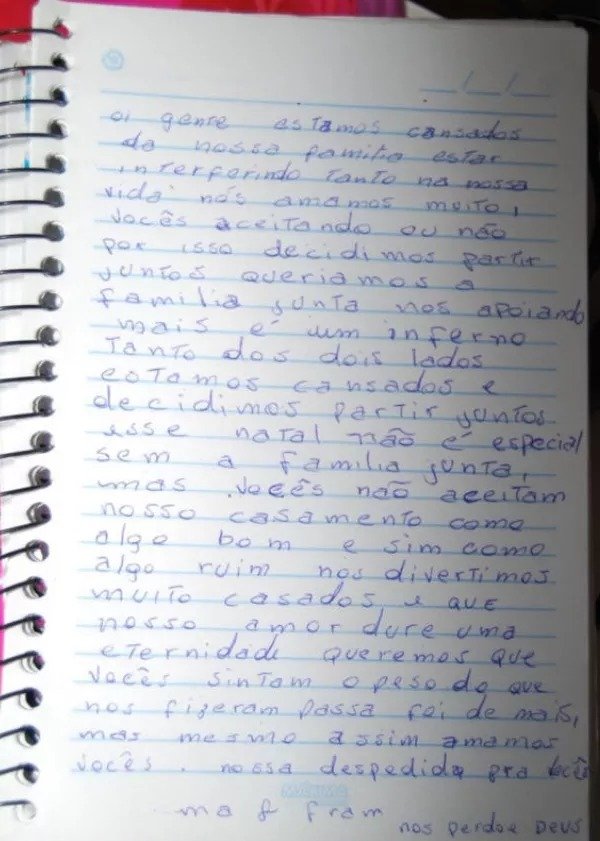 __/__/__
oi gente estamos cansados
da nossa familia estar
interferindo tanto na nossa
vida nós amamos muito,
vocês aceitando ou não
por isso decidimos partir
juntos queriamos a
familia junta nos apoiando
mais é um inferno
tanto dos dois lados
estamos cansados e
decidimos partir juntos
esse natal não é especial
sem a familia junta,
mas vocês não aceitam
nosso casamento como
algo bom e sim como
algo ruim nos divertimos
muito casados, e que
nosso amor dure uma
eternidade queremos que
vocês sintam o peso do que
nos fizeram passa foi de mais,
mas mesmo assim amamos
vocês. nossa despedida pra
ma & fram
nos perdoe Deus